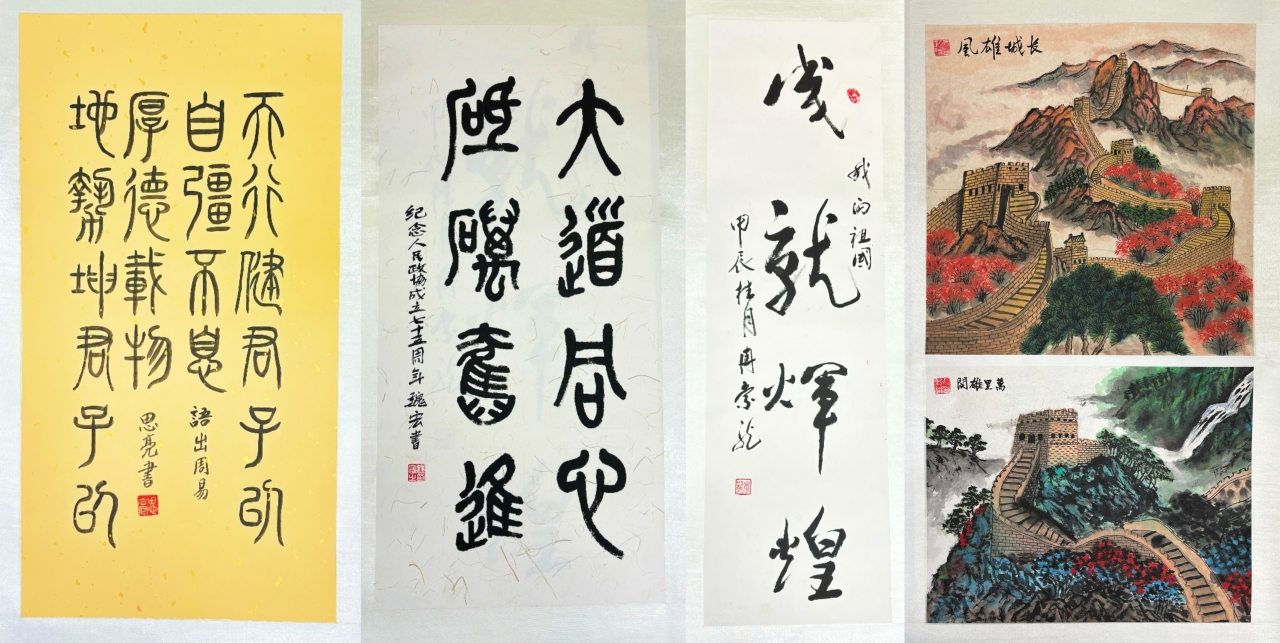 天行健君子以
自彊不息
語出周易
厚德載物
思亮書
地勢坤君子以
大道同心
砥礪奮進
纪念人民政協成立七十五周年 瑰宏書
我的祖國
成就煇煌
甲辰桂月
长城雄風
萬里雄関